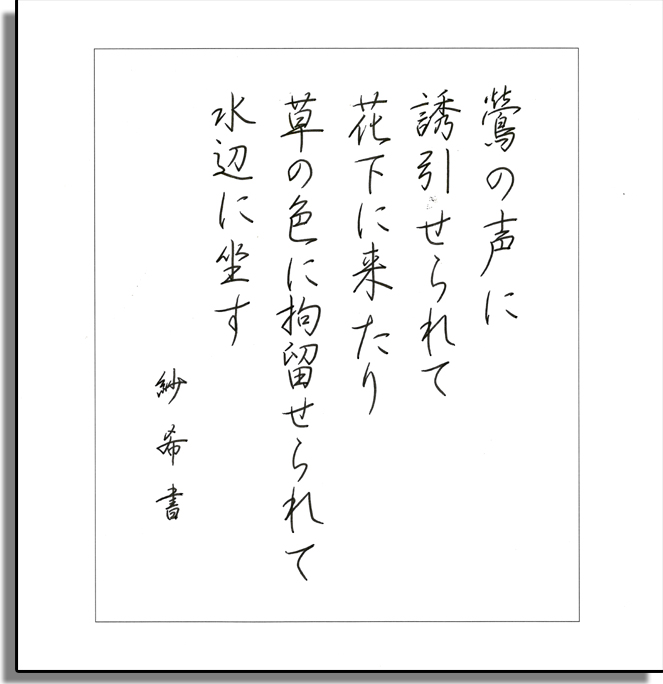 鶯の声に
誘引せられて
花下に来たり
草の色に拘留せられて
水辺に坐す
紗希書